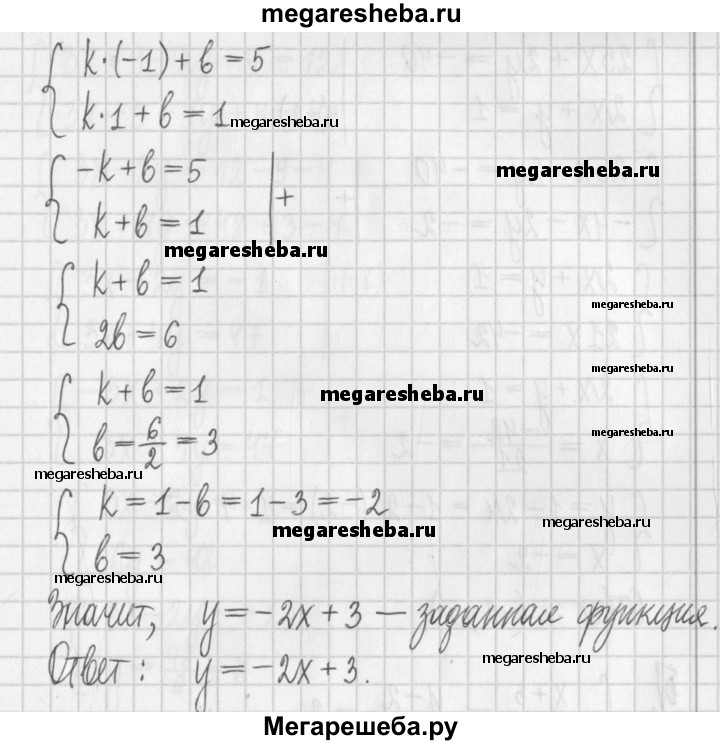 megaresheba.ru
k·(-1)+b=5
k·1+b=1 megaresheba.ru
-k+b=5
megaresheba.ru
k+b=1
+
megaresheba.ru
k+b=1
megaresheba.ru
2b=6
megaresheba.ru
k+b=1
megaresheba.ru
b=6/2=3
megaresheba.ru
megaresheba.ru
k=1-b=1-3=-2
megaresheba.ru
megaresheba.ru
b=3
megaresheba.ru
Значит, y=-2x+3 — заданная функция.
Ответ: y=-2x+3.
megaresheba.ru
Мегарешеба.ру